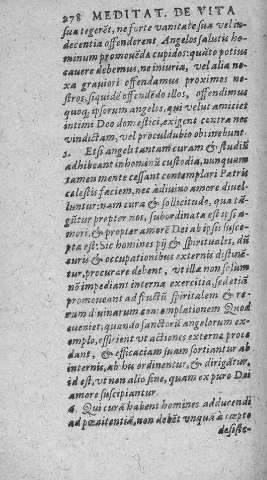 278 MEDITAT. DE VITA
sua tegerēt, ne forte vanitate sua vel in-
decentia offenderent Angelos salutis ho-
minum promouēda cupidos: quāto potius
cauere debemus, ne iniuria, vel alia ne-
xa grauiori offendamus proximos no-
stros: siquidē offendēdo illos, offendimus
quoq; ipsorum angelos, qui velut amici et
intimi Deo domestici, exigent contra nos
vindictam, vel proculdubio obtinebunt.
3. Etsi angeli tantam curam & studiū
adhibeant in hominū custodia, nunquam
tamen mente cessant contemplari Patris
cælestis faciem, nec à diuino amore diuel-
luntur: nam cura & sollicitudo, qua tā-
gūtur propter nos, subordinata est ipsi a-
mori, & propter amorē Dei ab ipsis susce-
pta est: Sic homines pij & spirituales, dū
curis & occupationibus externis distinē-
tur, procurare debent, vt illa non solùm
nō impediant interna exercitia, sed etiā
promoueant ad fructū spiritalem & re-
rum diuinarum contemplationem Quod
eueniet, quando sanctorū angelorum ex-
emplo, efficient vt actiones externæ proce
dant, & efficaciam suam sortiantur ab
internis, ab hu ordinentur, & dirigātur,
id est, vt non alio fine, quam ex puro Dei
amore suscipiantur.
4. Qui curā habent homines adducendi
ad pœnitentiā, non debēt vnquā à cœpto
desiste-